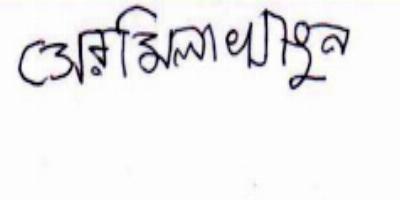 মোরমিলা খাতুন